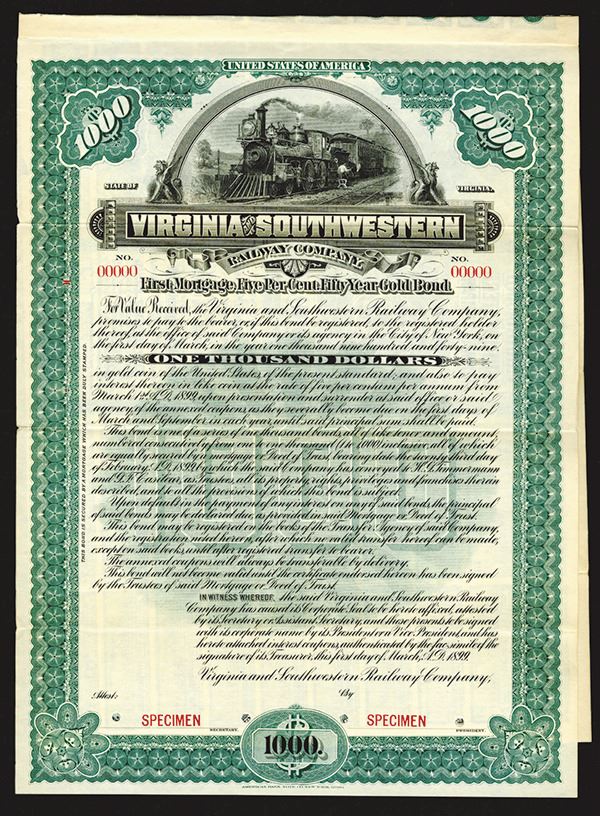 UNITED STATES OF AMERICA
1000
1000
STATE OF
VIRGINIA.
VIRGINIA AND SOUTHWESTERN
RAILWAY COMPANY.
NO.
00000
NO.
00000
First Mortgage, Five Per Cent. Fifty Year Gold Bond.
For Value Received, the Virginia and Southwestern Railway Company,
promises to pay to the bearer, or if this bond be registered, to the registered holder
thereof, at the office of said Company or its agency in the City of New York, on
the first day of March, in the year one thousand nine hundred and forty-nine,
ONE THOUSAND DOLLARS
in gold coin of the United States, of the present standard, and also to pay
interest thereon in like coin at the rate of five per centum per annum from
March 1st A.D. 1899, upon presentation and surrender at said office or said
agency, of the annexed coupons, as they severally become due on the first days of
March and September in each year, until said principal shall be paid.
This bond is one of a series of one thousand bonds, all of like tenor and amount,
numbered consecutively from one to one thousand (1 to 1000) inclusive, all of which
are equally secured by a mortgage or Deed of Trust bearing date the twenty third day
of February, A.D. 1899, by which the said Company has conveyed to
and as Trustees, all its property, rights, privileges and franchises therein
described, and to all the provisions of which this bond is subject.
Upon default in the payment of any interest on any of said bonds, the principal
of said bonds may be declared due, as provided in said Mortgage or Deed of Trust.
This bond may be registered on the books of the Transfer Agency of said Company,
and the registration noted hereon, after which no valid transfer hereof can be made,
except on said books, until after registered transfer to bearer.
The annexed coupons will always be transferable by delivery.
This bond will not become valid until the certificate endorsed hereon has been signed
by the Trustees of said Mortgage or Deed of Trust.
IN WITNESS WHEREOF, the said Virginia and Southwestern Railway
Company has caused its Corporate Seal to be hereto affixed, attested
by its Secretary or Assistant Secretary, and these presents to be signed
with its corporate name by its President or a Vice President, and has
hereto attached interest coupons, authenticated by the fac-simile of the
signature of its Treasurer, this first day of March, A.D. 1899.
Virginia and Southwestern Railway Company,
Attest:
By
SPECIMEN
SPECIMEN
SECRETARY.
PRESIDENT.
1000.
THIS BOND IS SECURED BY A MORTGAGE WHICH HAS BEEN DULY STAMPED.